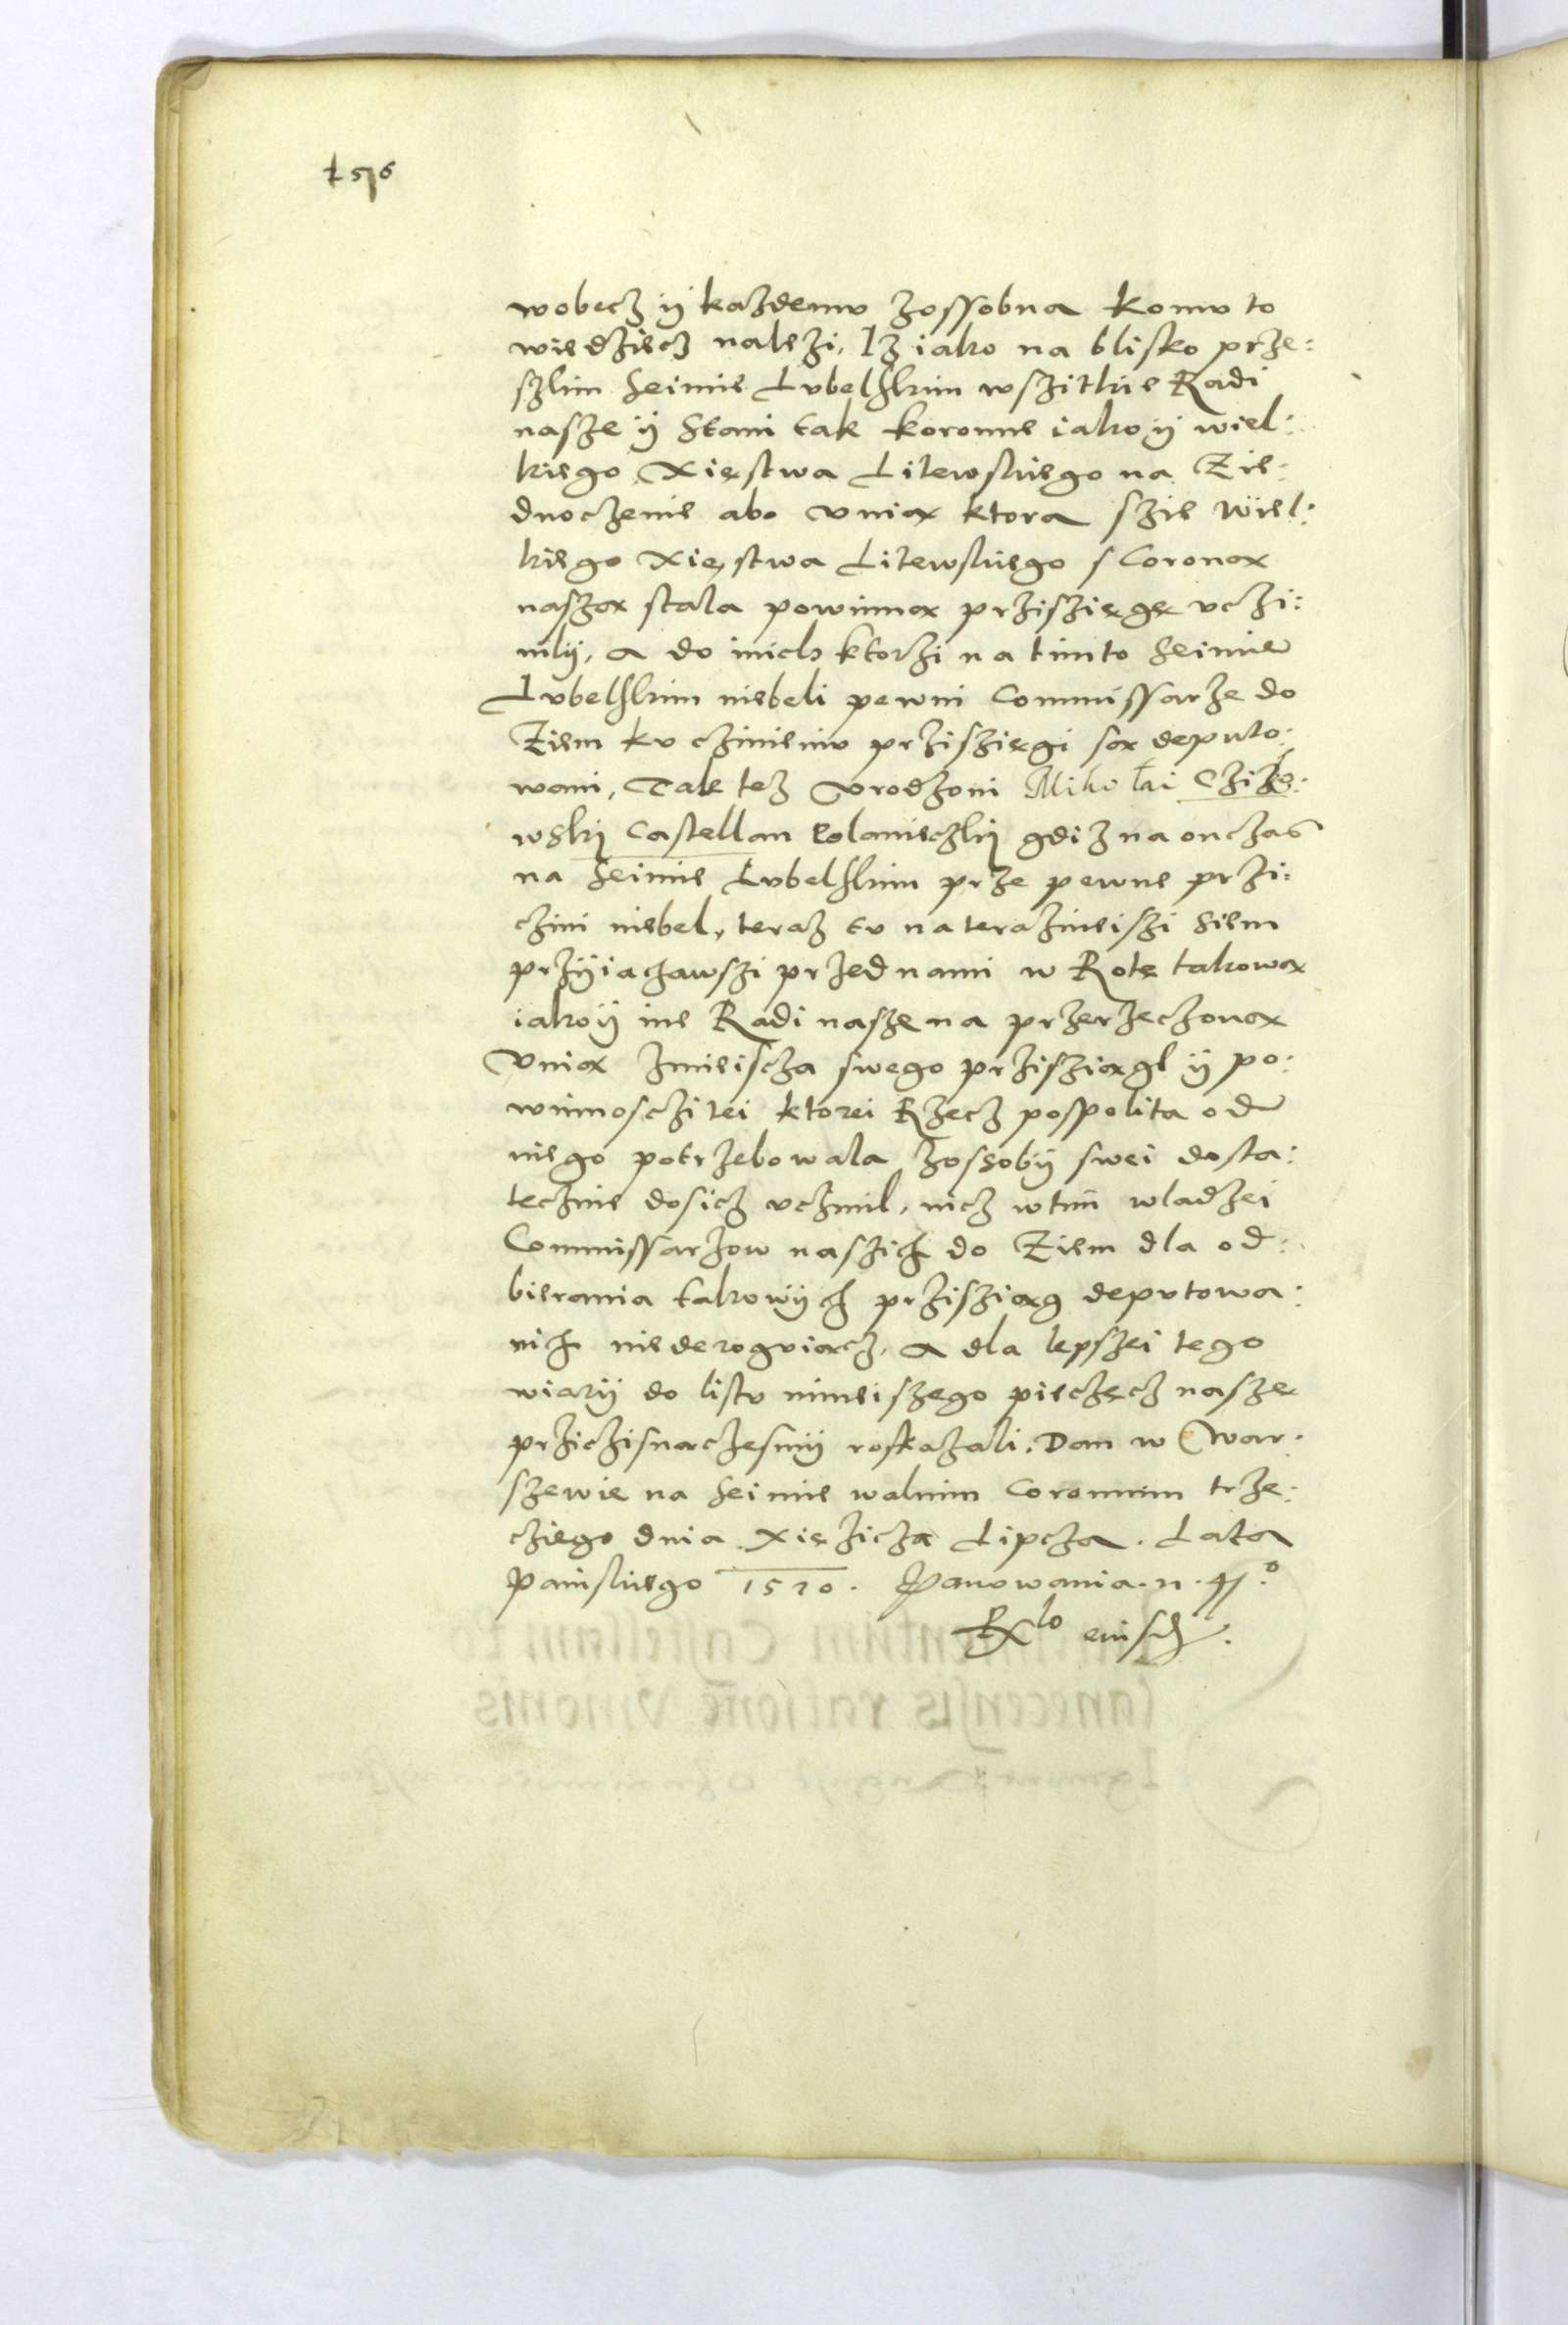 1576
wobecz ÿ każdemv zossobna komv to
wiedziecz należi, Iż iako na blisko prze:
szlim Seimie Lvbelskim wszitkie Radi
nasze ÿ Stani tak koronne iako ÿ wiel:
kiego Xięstwa Litewskiego na Zie:
dnoczenie abo vnią ktora szie wiel:
kiego Xięstwa Litewskiego s Coroną
naszą stala powinną przisziegę vczi:
nilÿ, a do inich ktorzi na timto Seimie
Lvbelskim niebeli pewni Commissarze do
Ziem kv czinieniv przisziegi są deputo:
wani, Tak też Vrodzoni Mikołai Cziżo:
wskÿ Castellan Polanieczkÿ gdiż na onczas
na Seimie Lvbelskim prze pewne przi:
czini niebel, teraz tv na teraznieiszi Siem
przÿiachawszi przed nami w Rotę takową
iako ÿ ine Radi nasze na przerzeczoną
Vnią zmieiscza swego prziszięgl ÿ po:
winnosczi tei ktorei Rzecz pospolita od
niego potrzebowala zossobÿ swei dosta:
tecznie dosicz vczinil, nicz wtim wladzei
Commissarzow naszich do Ziem dla od:
bierania takowÿch przisziąg depvtowa:
nich niederogviącz, a dla lepszei tego
wiarÿ do listv ninieiszego pieczęcz naszę
prziczisnączesmÿ roskazali. Dan w War:
szewie na Seimie walnim Coronnim trze:
cziego dnia Xiężicza Lipcza. Lata
Panskiego 1570. Panowania. n. 41.º
Rlo eiusd.